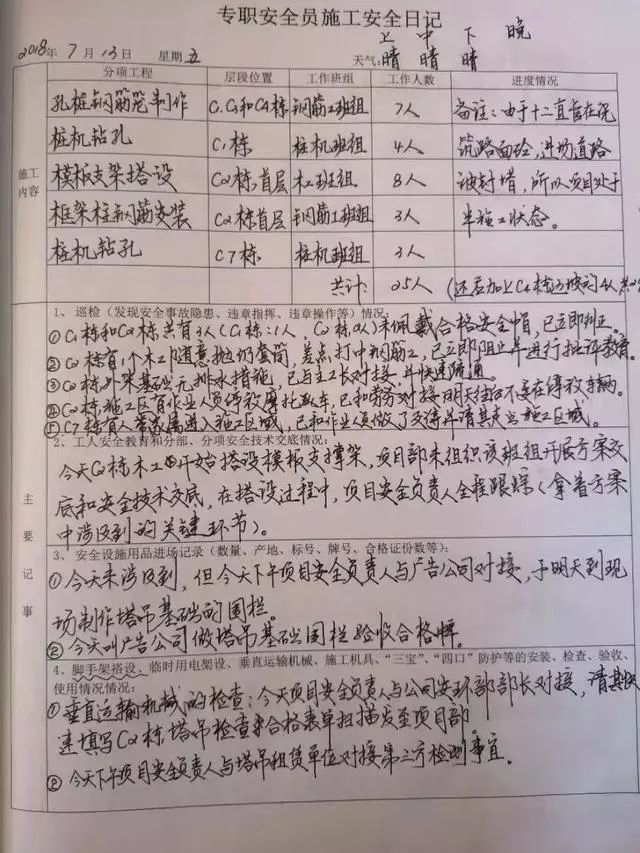 专职安全员施工安全日记
上 中 下 晚
2018年 7月 13日 星期五 天气：晴 晴 晴
分项工程 层段位置 工作班组 工作人数 进度情况
孔桩钢筋笼制作 C1 栋 钢筋工班组 7人 备注：由于十二直管在浇
桩机钻孔 C1栋 桩机班组 4人 筑路面砼，进场道路
施工内容
模板支架搭设 C2栋首层 木工班组 8人 被封堵，所以项目处于
框架柱钢筋安装 C2栋首层 钢筋工班组 3人 半施工状态。
桩机钻孔 C7栋 桩机班组 3人
共计： 25人
主要记事
1、巡检（发现安全事故隐患、违章指挥、违章操作等）情况：
① C1栋和C2栋共有3人（C1栋：1人，C2栋2人）未佩戴合格安全中冒，已立即纠正。
② C2栋有1个木工随意抛扔套筒，差点打中钢筋工，已立即阻止并进行批评教育。
③ C2栋外架基础无排水措施，已与主工长对接，并快速疏通。
④ C2栋施工区有作业人员停放摩托车，已和劳务对接明天往后不要在停放车辆。
⑤ C7栋有人带家属进入施工区域，已和作业人员做了交待并请其走出施工区域。
2、工人安全教育和分部、分项安全技术交底情况：
今天C2栋木工开始搭设模板支撑架，项目部未组织该班组开展方案交
底和安全技术交底，在搭设过程中，项目安全负责人全程跟踪（拿着方案
中涉及到的关键环节）。
3、安全设施用品进场记录（数量、产地、标号、牌号、合格证份数等）：
① 今天未涉及到，但今天下午项目安全负责人与广告公司对接，于明天到现
场制作塔吊基础的围栏。
② 今天叫广告公司做塔吊基础围栏验收合格牌。
4、脚手架搭设、临时用电架设、垂直运输机械、施工机具、“三宝”、“四口”防护等的安装、检查、验收、
使用情况情况：
① 垂直运输机械的检查：今天项目安全负责人与公司安环部部长对接，请其快
速填写C2栋塔吊检查合格表单扫描发至项目部。
② 今天下午项目安全负责人与塔吊租赁单位对接第三方检测事宜。